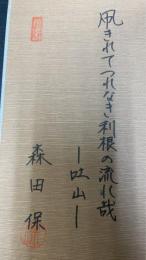 凧きれてつれなき利根の流れ哉
―吐山―
森田保